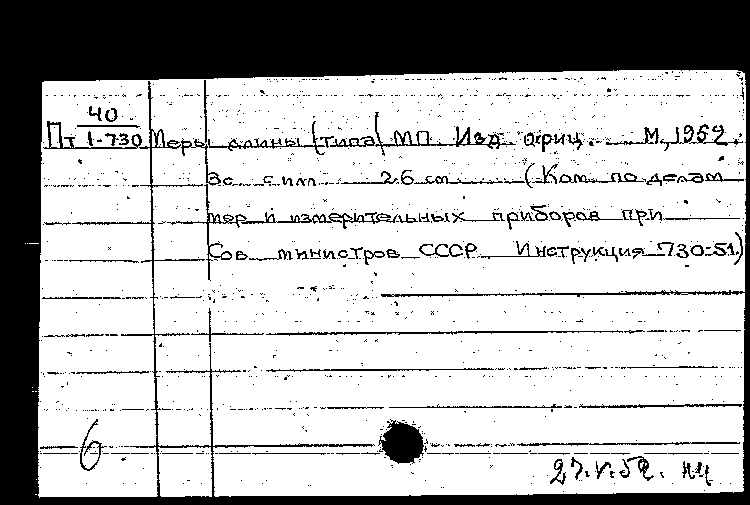 40
Пт 1-730 Меры длины (типа МП. Изд. офиц. М., 1952.
3с. с илл. 26 см. (Ком. по делам
мер и измерительных приборов при
Сов. министров СССР. Инструкция 730-51.)
6
27.V.52. нц